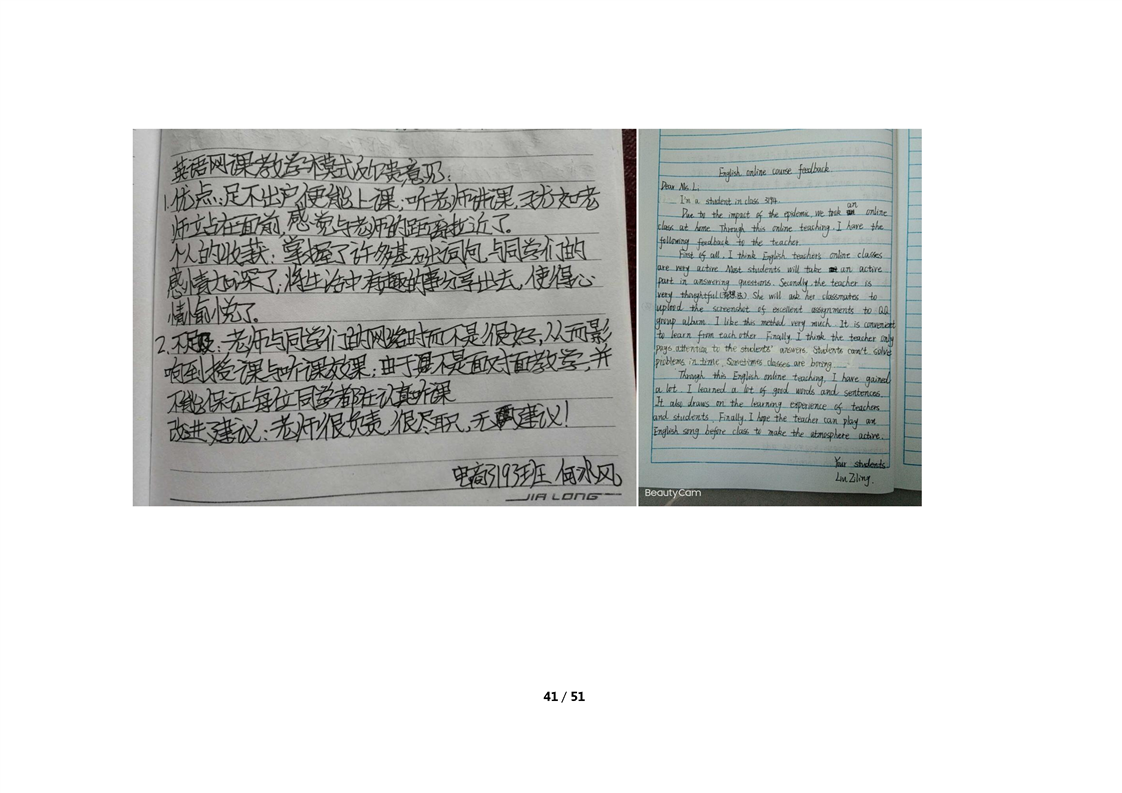 英语网课教学模式反馈意见:
1.优点:足不出户便能上课;听老师讲课,犹如老
师站在面前,感觉与老师的距离拉近了。
个人的收获:掌握了许多基础词句,与同学们的
感情加深了,将生活中有趣的事分享出去,使得心
情愉悦了。
2.不足:老师与同学们的网络时而不是很好,从而影
响到授课与听课效果;由于是面对面教学,并
不能保证每位同学都在认真听课
改进建议:老师很负责,很尽职,无建议!
电商3193班 何水风
JIA LONG
English online course feedback.
Dear Ms. L:
I'm a student in class 3194.
Due to the impact of the epidemic, we took an online
class at home. Through this online teaching, I have the
following feedback to the teacher.
First of all, I think English teacher's online classes
are very active. Most students will take an active
part in answering questions. Secondly, the teacher is
very thoughtful. She will ask her classmates to
upload the screenshot of excellent assignments to QQ
group album. I like this method very much. It is convenient
to learn from each other. Finally, I think the teacher only
pays attention to the students' answers. Students can't solve
problems in time. Sometimes classes are boring.
Through this English online teaching, I have gained
a lot. I learned a lot of good words and sentences.
It also draws on the learning experience of teachers
and students. Finally, I hope the teacher can play an
English song before class to make the atmosphere active.
Your students
Lin Ziling.
BeautyCam
41 / 51